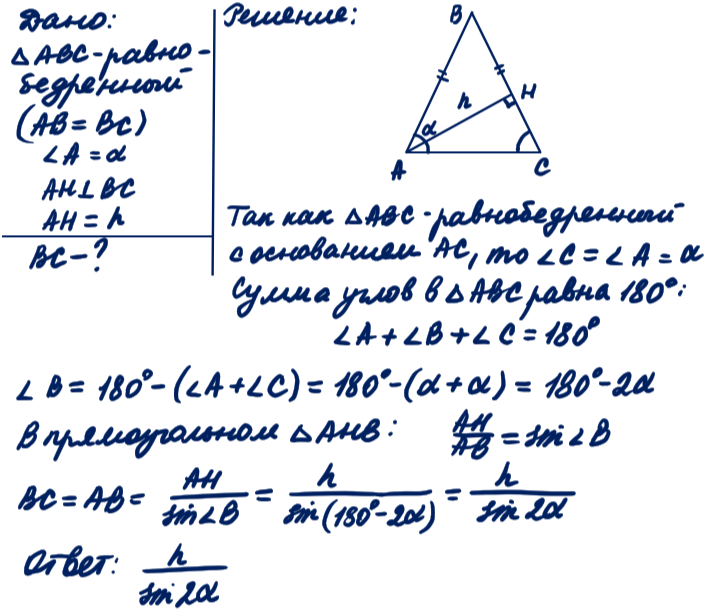 Дано:
△ABC - равно-
бедренный
(AB = BC)
∠A = α
AH ⊥ BC
AH = h
BC - ?
Решение:
B
H
h
α
A
C
Так как △ABC - равнобедренный
с основанием AC, то ∠C = ∠A = α
Сумма углов в △ABC равна 180°:
∠A + ∠B + ∠C = 180°
∠B = 180° - (∠A + ∠C) = 180° - (α + α) = 180° - 2α
В прямоугольном △AHB: AH/AB = sin ∠B
BC = AB = AH/sin∠B = h/sin(180° - 2α) = h/sin 2α
Ответ: h/sin 2α